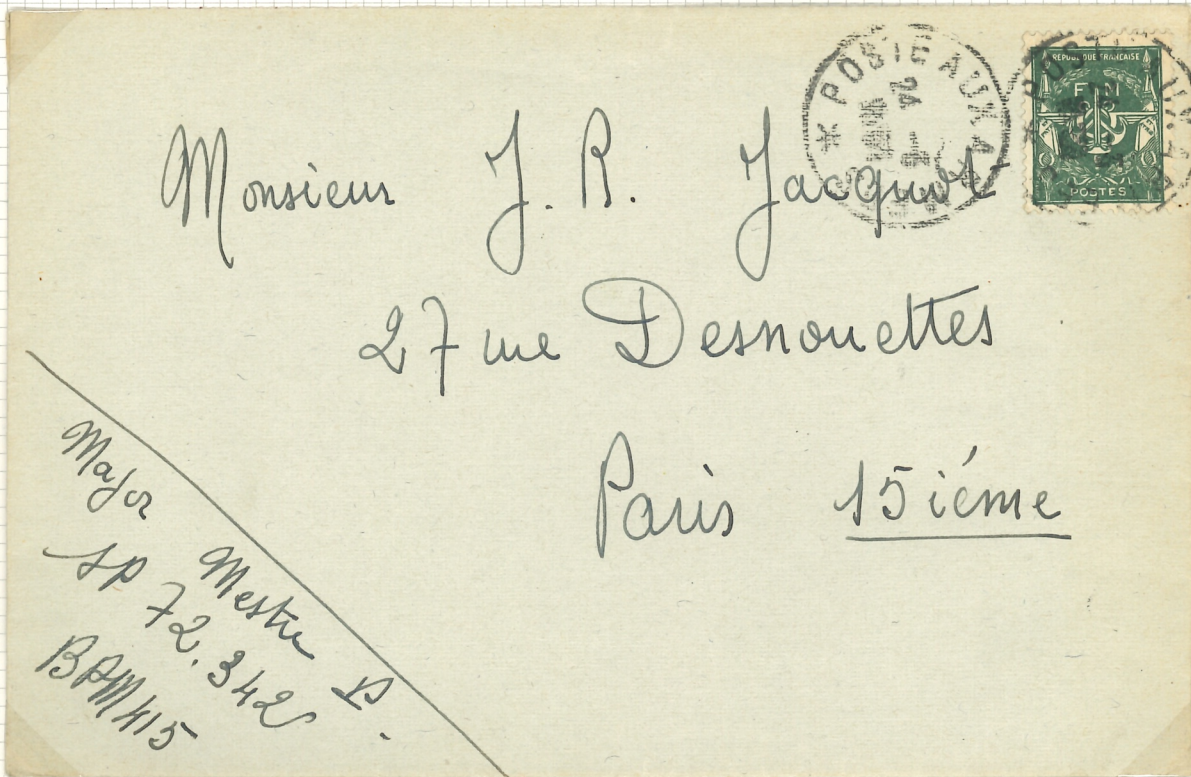 POSTE AUX A
24
RÉPUBLIQUE FRANÇAISE
F M
POSTES
Monsieur J. R. Jacquot
27 rue Desnouettes
Paris 15iéme
Major Mestre P.
SP 72.342
BPM415